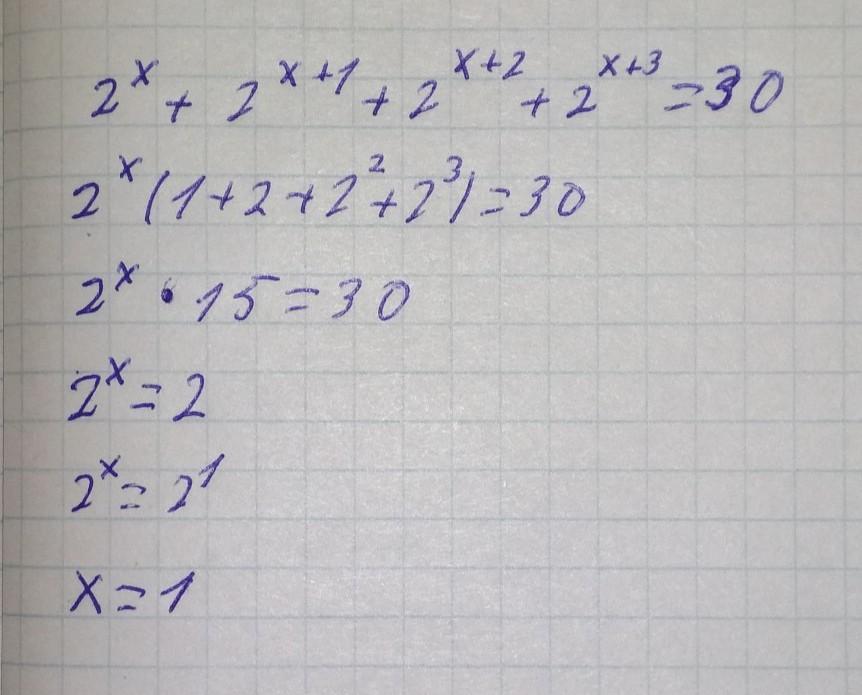 2^x + 2^{x+1} + 2^{x+2} + 2^{x+3} = 30
2^x (1+2+2^2+2^3) = 30
2^x • 15 = 30
2^x = 2
2^x = 2^1
x = 1